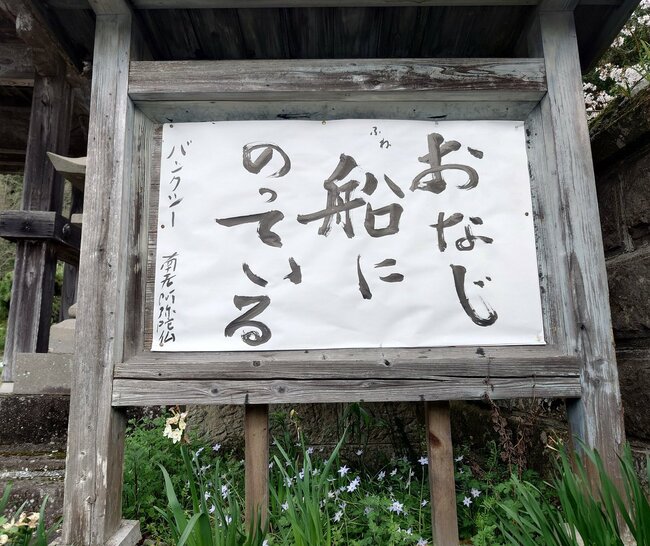 おなじ
船に
ふね
のっている
バンクシー
南无阿弥陀仏